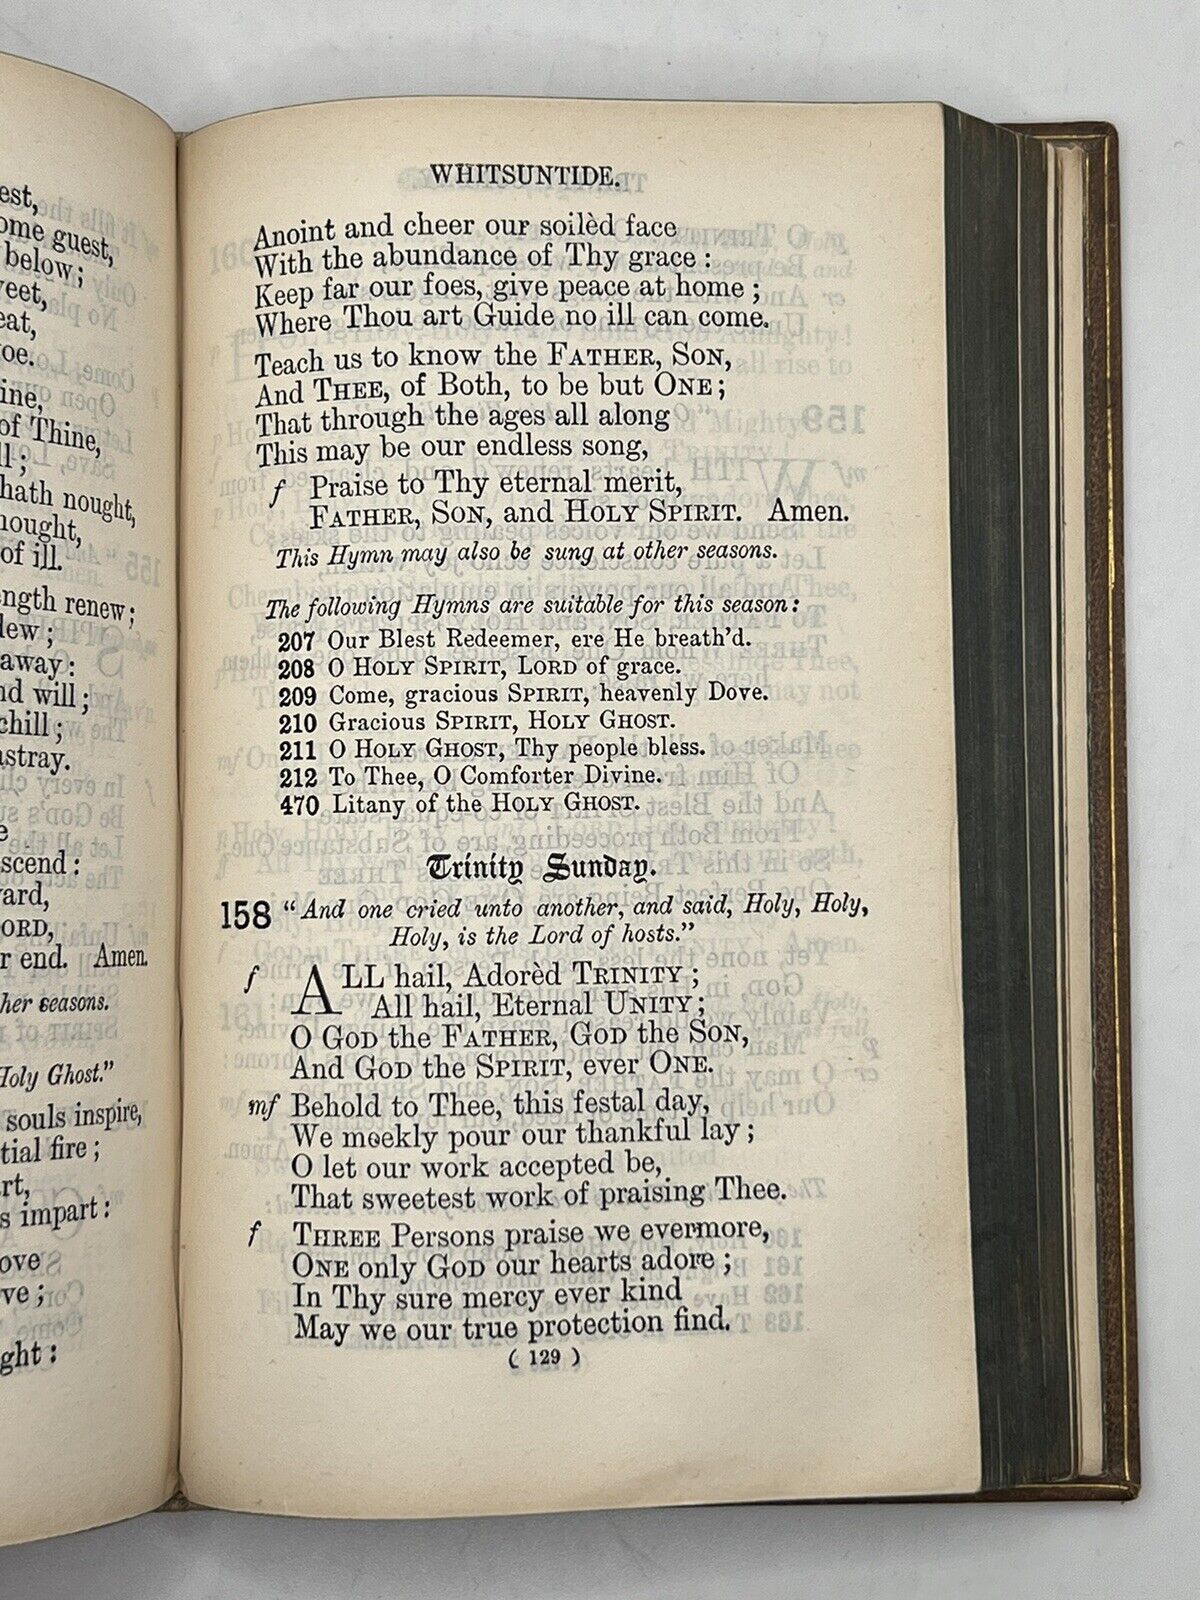 est,
ome guest,
below;
weet,
eat,
oe.
ine,
of Thine,
ll;
hath nought,
nought,
of ill.
ength renew;
dew;
away:
nd will;
chill;
astray.
e
scend:
ard,
ORD,
r end. Amen.
her seasons.
Holy Ghost."
souls inspire,
tial fire;
rt,
s impart:
ove
ve;
ght:
WHITSUNTIDE.
Anoint and cheer our soilèd face
With the abundance of Thy grace:
Keep far our foes, give peace at home;
Where Thou art Guide no ill can come.
Teach us to know the FATHER, SON,
And THEE, of Both, to be but ONE;
That through the ages all along
This may be our endless song,
f Praise to Thy eternal merit,
FATHER, SON, and HOLY SPIRIT. Amen.
This Hymn may also be sung at other seasons.
The following Hymns are suitable for this season:
207 Our Blest Redeemer, ere He breath'd.
208 O HOLY SPIRIT, LORD of grace.
209 Come, gracious SPIRIT, heavenly Dove.
210 Gracious SPIRIT, HOLY GHOST.
211 O HOLY GHOST, Thy people bless.
212 To Thee, O Comforter Divine.
470 Litany of the HOLY GHOST.
Trinity Sunday.
158 "And one cried unto another, and said, Holy, Holy,
Holy, is the Lord of hosts."
f ALL hail, Adorèd TRINITY;
All hail, Eternal UNITY;
O GOD the FATHER, GOD the SON,
And GOD the SPIRIT, ever ONE.
mf Behold to Thee, this festal day,
We meekly pour our thankful lay;
O let our work accepted be,
That sweetest work of praising Thee.
f THREE Persons praise we evermore,
ONE only GOD our hearts adore;
In Thy sure mercy ever kind
May we our true protection find.
( 129 )